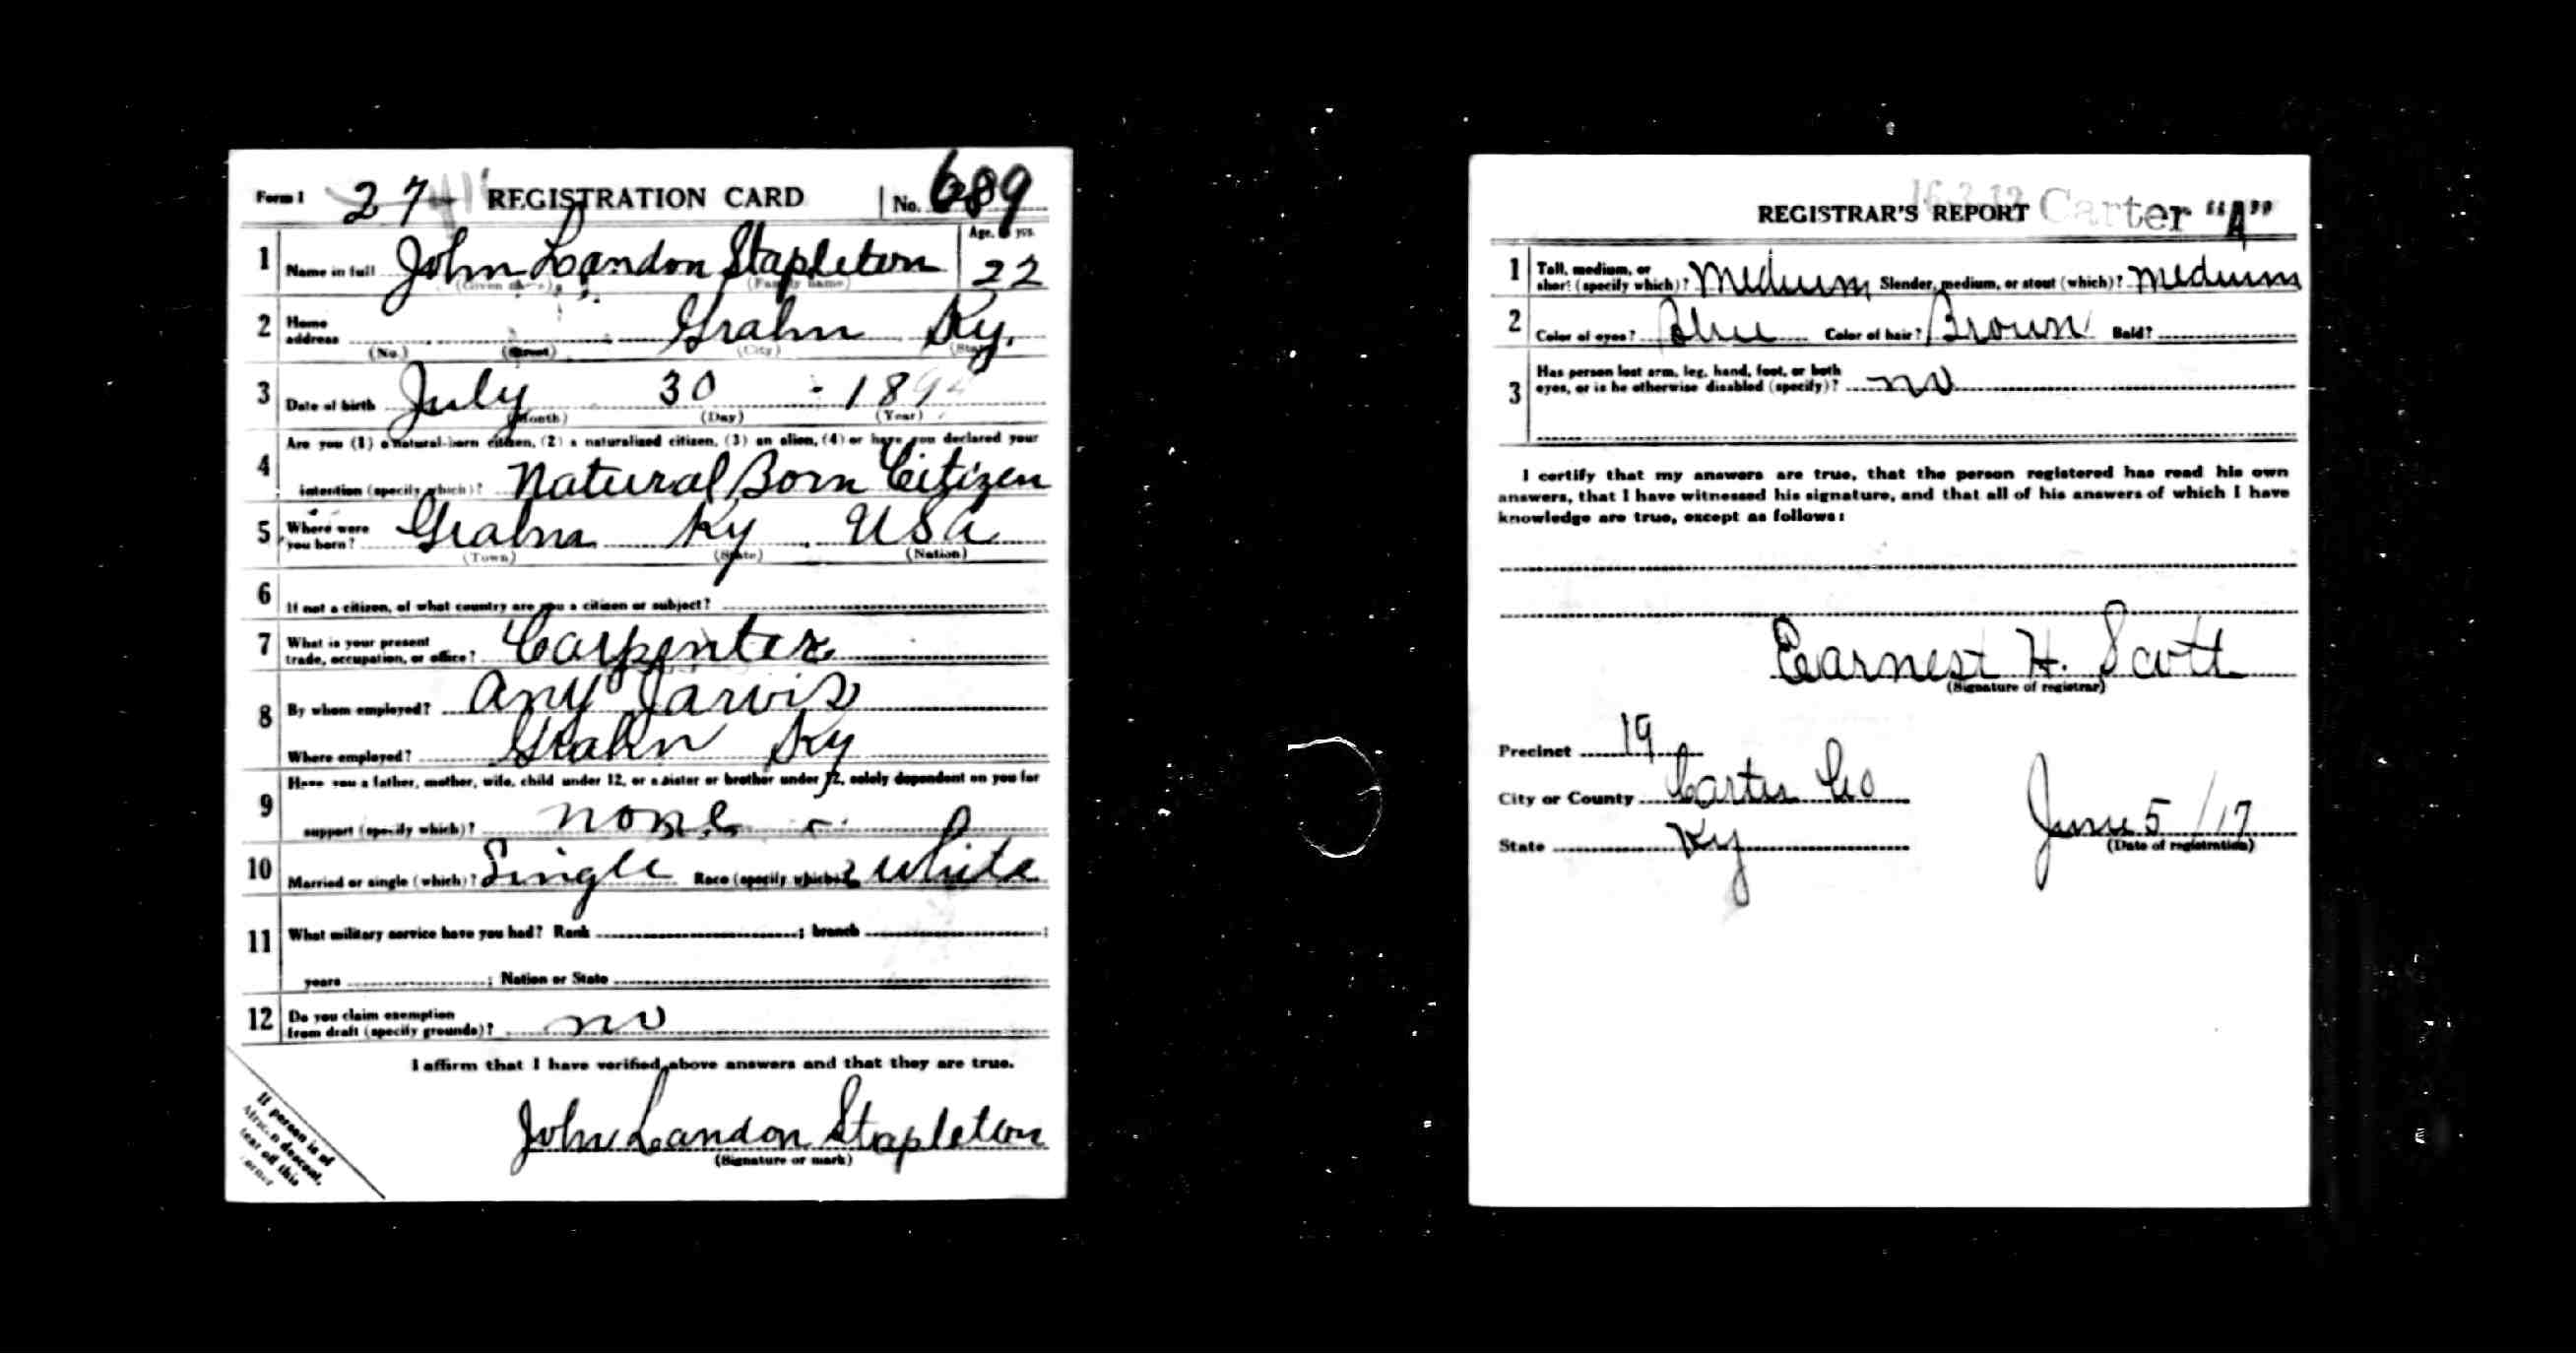 Form 1 27 REGISTRATION CARD No. 689
1 Name in full John Landon Stapleton Age, yrs. 22
(Family name)
2 Home address Grahn Ky.
(No.) (Street) (City) (State)
3 Date of birth July 30 - 1894
(Month) (Day) (Year)
4 Are you (1) a natural-born citizen, (2) a naturalized citizen, (3) an alien, (4) or have you declared your
intention (specify which)? Natural Born Citizen
5 Where were you born? Grahn Ky USA
(Town) (State) (Nation)
6 If not a citizen, of what country are you a citizen or subject?
7 What is your present trade, occupation, or office? Carpenter
8 By whom employed? Any Jarvis
Where employed? Grahn Ky
9 Have you a father, mother, wife, child under 12, or a sister or brother under 12, solely dependent on you for
support (specify which)? none
10 Married or single (which)? Single Race (specify which)? White
11 What military service have you had? Rank ; branch ;
years ; Nation or State
12 Do you claim exemption from draft (specify grounds)? no
I affirm that I have verified above answers and that they are true.
John Landon Stapleton
(Signature or mark)
If person is of
African descent,
tear off this
corner
REGISTRAR'S REPORT Carter "A"
1 Tall, medium, or short (specify which)? Medium Slender, medium, or stout (which)? Medium
2 Color of eyes? Blue Color of hair? Brown Bald?
3 Has person lost arm, leg, hand, foot, or both
eyes, or is he otherwise disabled (specify)? no
I certify that my answers are true, that the person registered has read his own
answers, that I have witnessed his signature, and that all of his answers of which I have
knowledge are true, except as follows:
Earnest H. Scott
(Signature of registrar)
Precinct 19
City or County Carter Co
State Ky
June 5/17
(Date of registration)